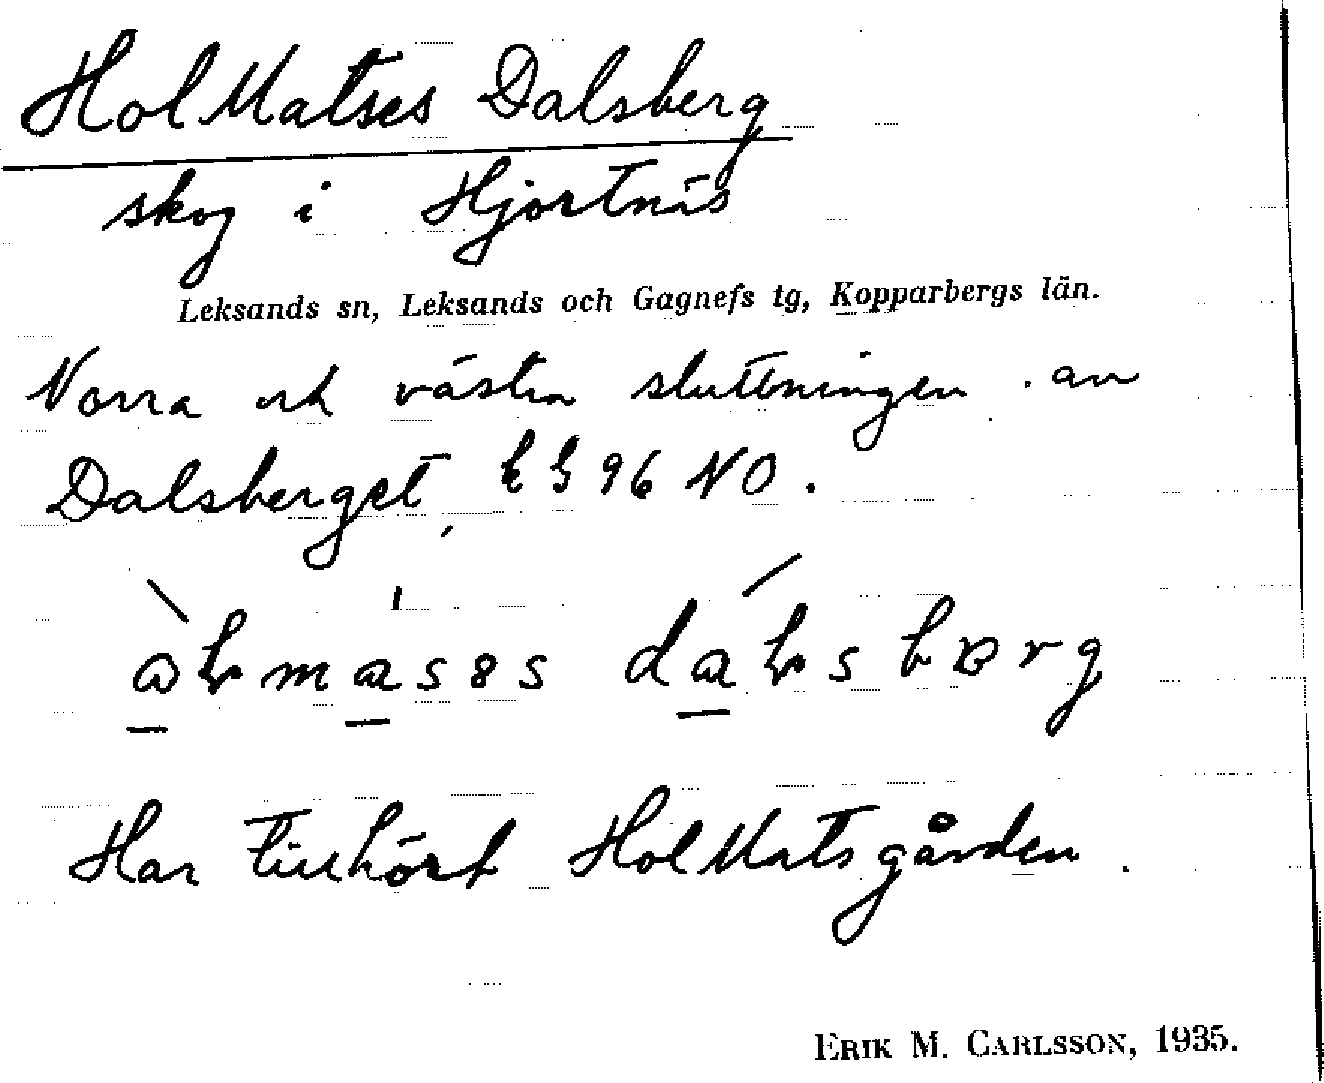 Hol Matses Dalsberg
skog i Hjortnäs
Leksands sn, Leksands och Gagnefs tg, Kopparbergs län.
Norra och västra sluttningen av
Dalsberget, EG 96 NO.
Har tillhört Hol Matsgården.
ERIK M. CARLSSON, 1935.